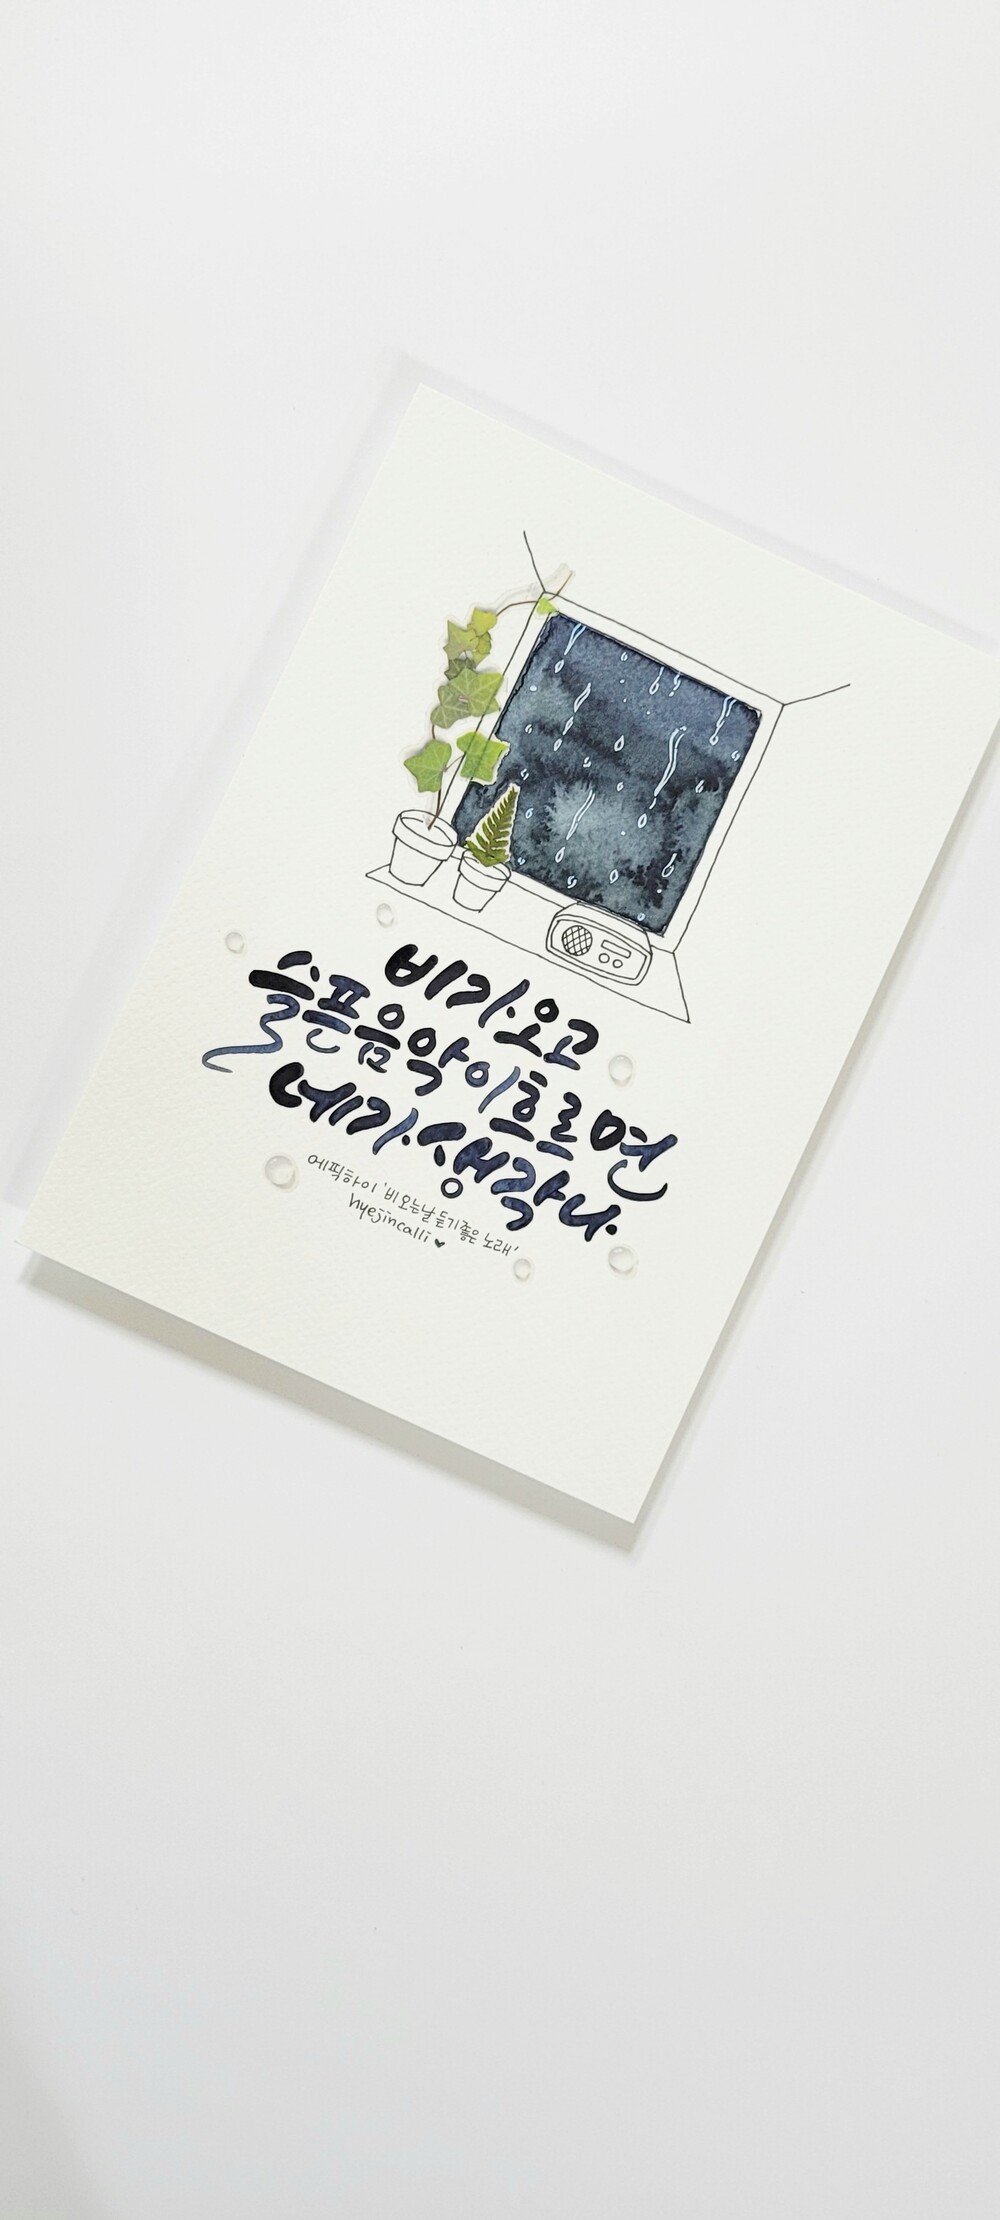 비가 오고
슬픈 음악이 흐르면
네가 생각나.
에픽하이 '비오는날 듣기 좋은 노래'
hyejincalli ♥